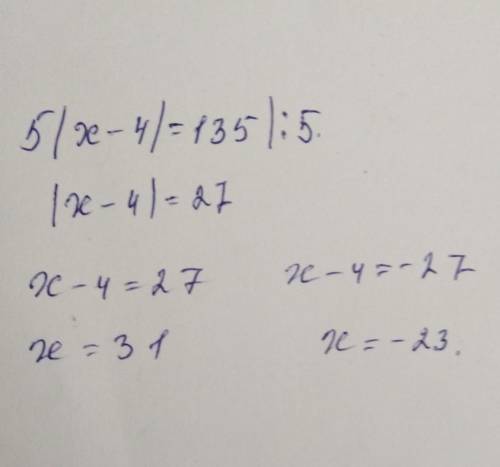 5|x-4|=135|:5.
|x-4|=27
x-4=27 x-4=-27
x=31 x=-23.